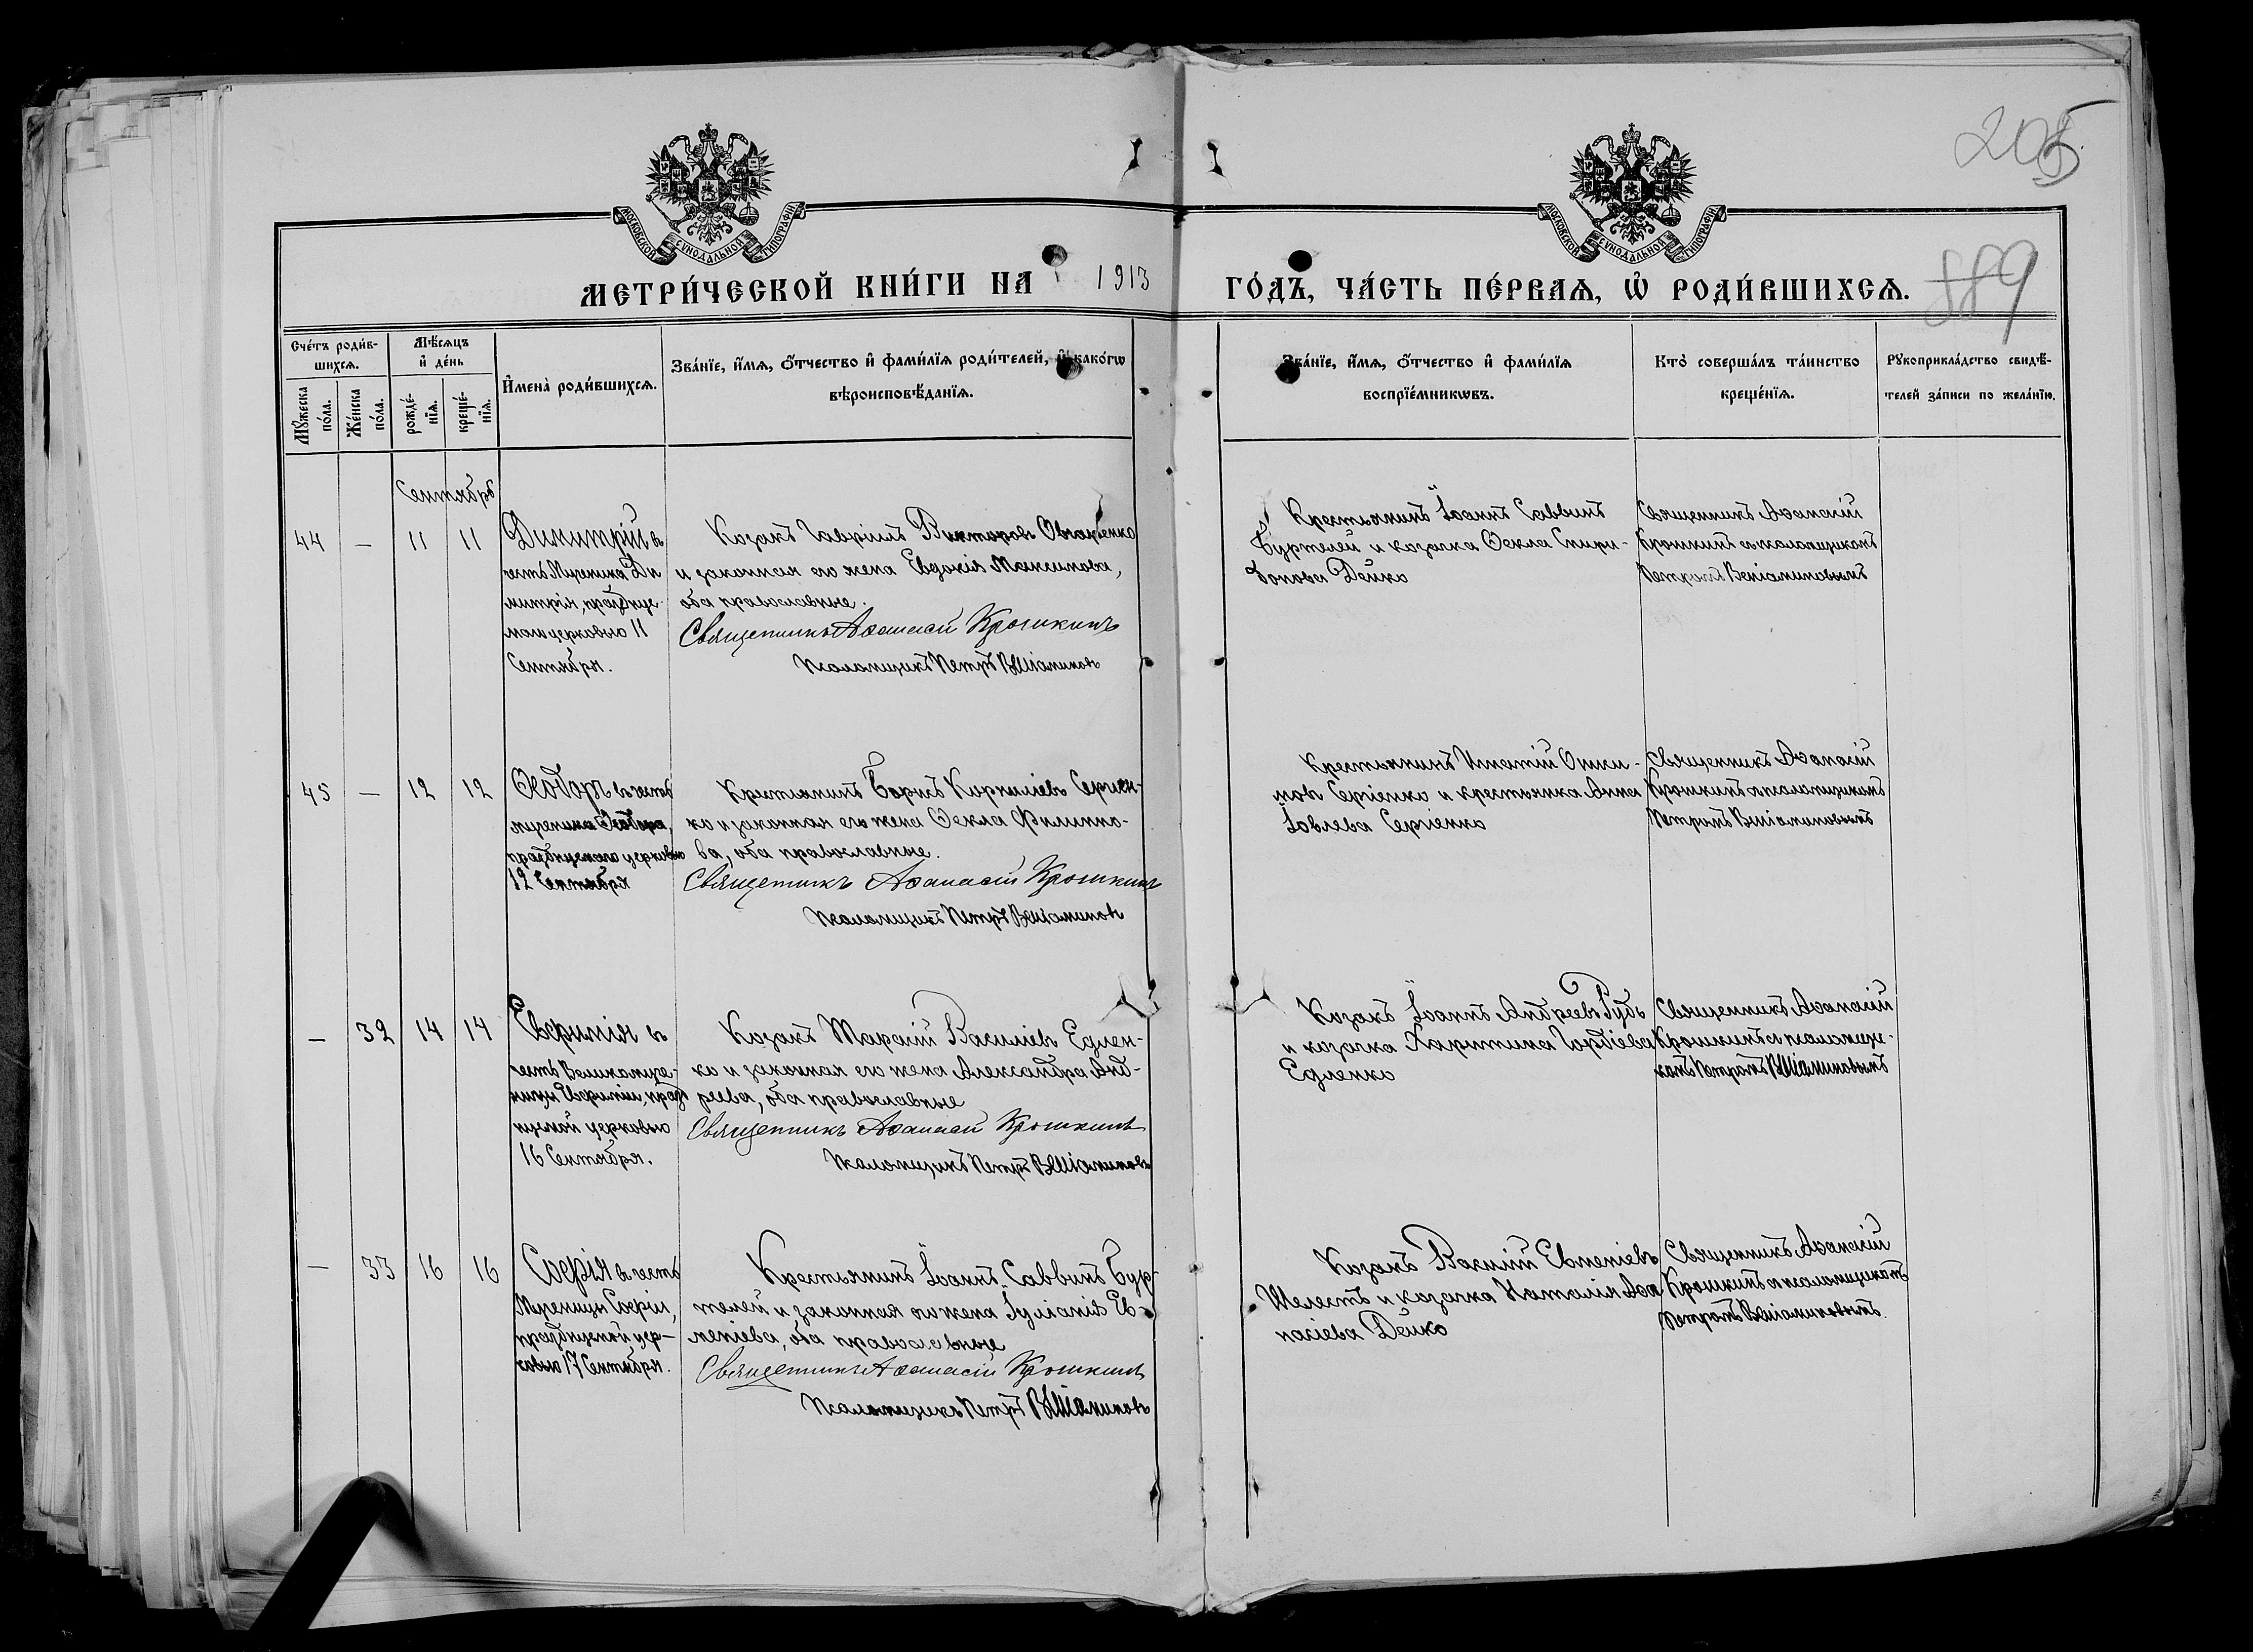 205
889
МОСКОВСКОЙ СѴНОДАЛЬНОЙ ТИПОГРАФІИ
МОСКОВСКОЙ СѴНОДАЛЬНОЙ ТИПОГРАФІИ
МЕТРИ́ЧЕСКОЙ КНИ́ГИ НА 1913 ГО́ДЪ, ЧА́СТЬ ПЕ́РВАѦ, Ѡ҆ РОДИ́ВШИХСѦ.
Сче́тъ роди́вшихсѧ.
Мꙋ́жеска по́ла.
Же́нска по́ла.
Мѣ́сѧцъ и҆ де́нь
рожде́нїѧ.
креще́нїѧ.
И҆мена̀ роди́вшихсѧ.
Зва́нїе, и҆́мѧ, ѻ҆́тчество и҆ фами́лїѧ роди́телей, и҆ како́гѡ
вѣроисповѣ́данїѧ.
Зва́нїе, и҆́мѧ, ѻ҆́тчество и҆ фами́лїѧ
воспрїе́мникѡвъ.
Кто̀ соверша́лъ та́инство
креще́нїѧ.
Рꙋкоприкла́дство свидѣ́-
телей за́писи по жела́нїю.
Сентябрь
44 — 11 11
Димитрій въ
честь Мученика Ди
митрія, празднуе-
маго церковью 11
Сентября.
Козакъ Гавріилъ Викторовъ
и законная его жена Евдокія Максимова,
оба православные.
Священникъ Аѳанасій Крошкинъ
Псаломщикъ Петръ Веніаминовъ
Крестьянинъ Іоаннъ Саввинъ
Буртелей и козачка Ѳекла Спири-
донова Дейко
Священникъ Аѳанасій
Крошкинъ съ псаломщикомъ
Петромъ Веніаминовымъ
45 — 12 12
Ѳеодоръ въ честь
мученика Ѳеодора,
празднуемаго церковью
12 Сентября
Крестьянинъ Борисъ Корниліевъ Сергіен-
ко и законная его жена Ѳекла Филиппо-
ва, оба православные.
Священникъ Аѳанасій Крошкинъ
Псаломщикъ Петръ Веніаминовъ
Крестьянинъ Игнатій
Сергіенко и крестьянка Анна
Іовлева Сергіенко
Священникъ Аѳанасій
Крошкинъ съ псаломщикомъ
Петромъ Веніаминовымъ
— 32 14 14
Евфимія въ
честь Великомуче-
ницы Евфиміи, празд
нуемой церковью
16 Сентября.
Козакъ Тарасій Василіевъ Едлен-
ко и законная его жена Александра Анд-
реева, оба православные
Священникъ Аѳанасій Крошкинъ
Псаломщикъ Петръ Веніаминовъ
Козакъ Іоаннъ Андреевъ Губь
и козачка Харитина Гордіева
Едленко
Священникъ Аѳанасій
Крошкинъ съ псаломщи-
комъ Петромъ Веніаминовымъ
— 33 16 16
Софія въ честь
Мученицы Софіи,
празднуемой цер-
ковью 17 Сентября.
Крестьянинъ Іоаннъ Саввинъ Бур-
телей и законная его жена Іуліанія Ев-
меніева, оба православные
Священникъ Аѳанасій Крошкинъ
Псаломщикъ Петръ Веніаминовъ
Козакъ Василій Евменіевъ
Шелестъ и козачка Наталія Аѳа
насіева Дейко
Священникъ Аѳанасій
Крошкинъ съ псаломщикомъ
Петромъ Веніаминовымъ.